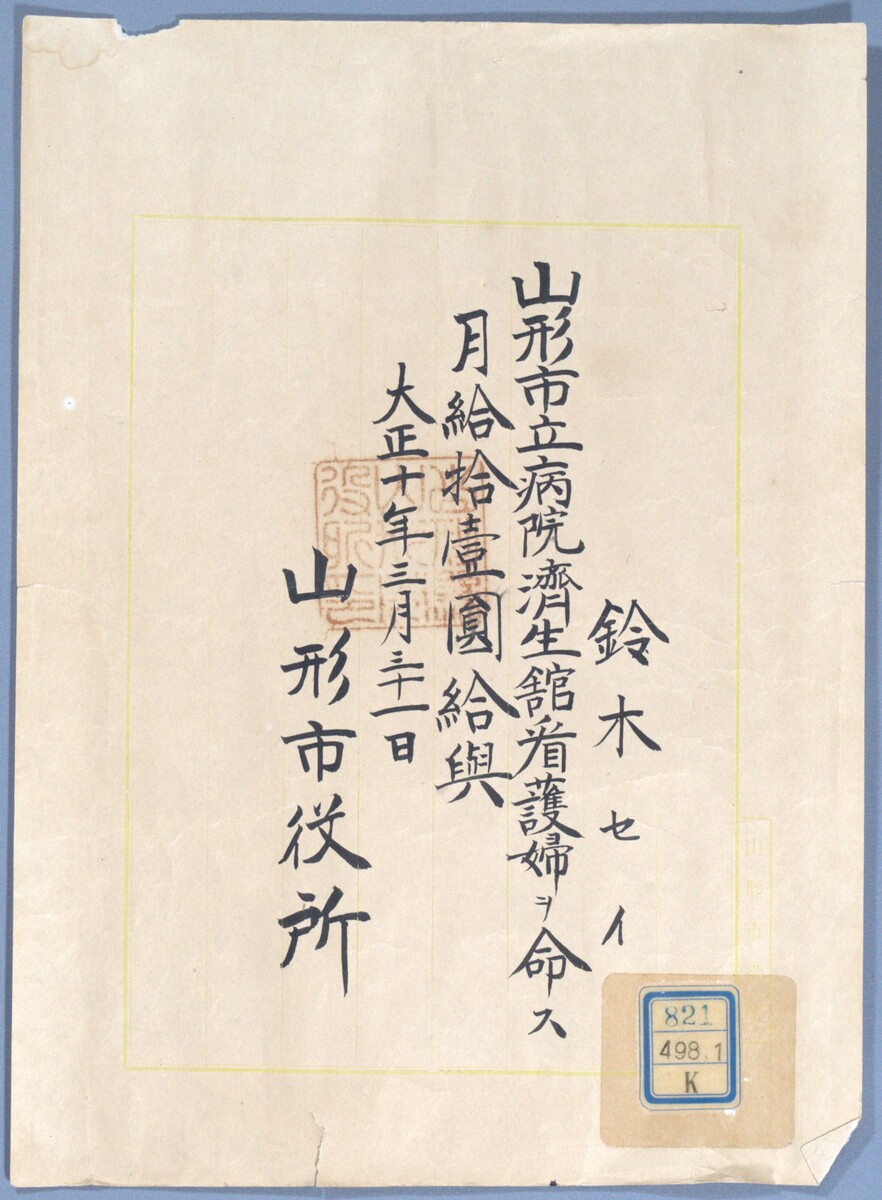 鈴木セイ
山形市立病院濟生舘看護婦ヲ命ス
月給拾壹圓給與
大正十年三月三十一日
山形市役所
山形市
821
498.1
K